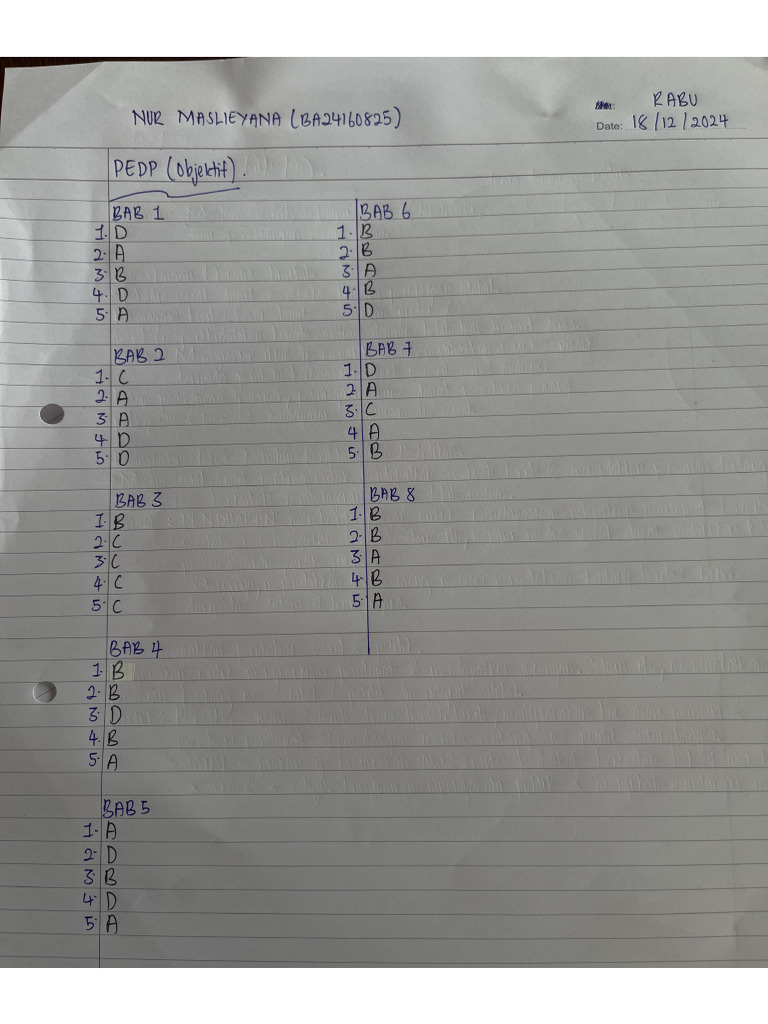 NUR MASLIEYANA (BA24160825)
RABU
Date: 18/12/2024
PEDP (Objektif).
BAB 1
1. D
2. A
3. B
4. D
5. A
BAB 2
1. C
2. A
3. A
4. D
5. D
BAB 3
1. B
2. C
3. C
4. C
5. C
BAB 4
1. B
2. B
3. D
4. B
5. A
BAB 5
1. A
2. D
3. B
4. D
5. A
BAB 6
1. B
2. B
3. A
4. B
5. D
BAB 7
1. D
2. A
3. C
4 A
5. B
BAB 8
1. B
2. B
3. A
4. B
5. A